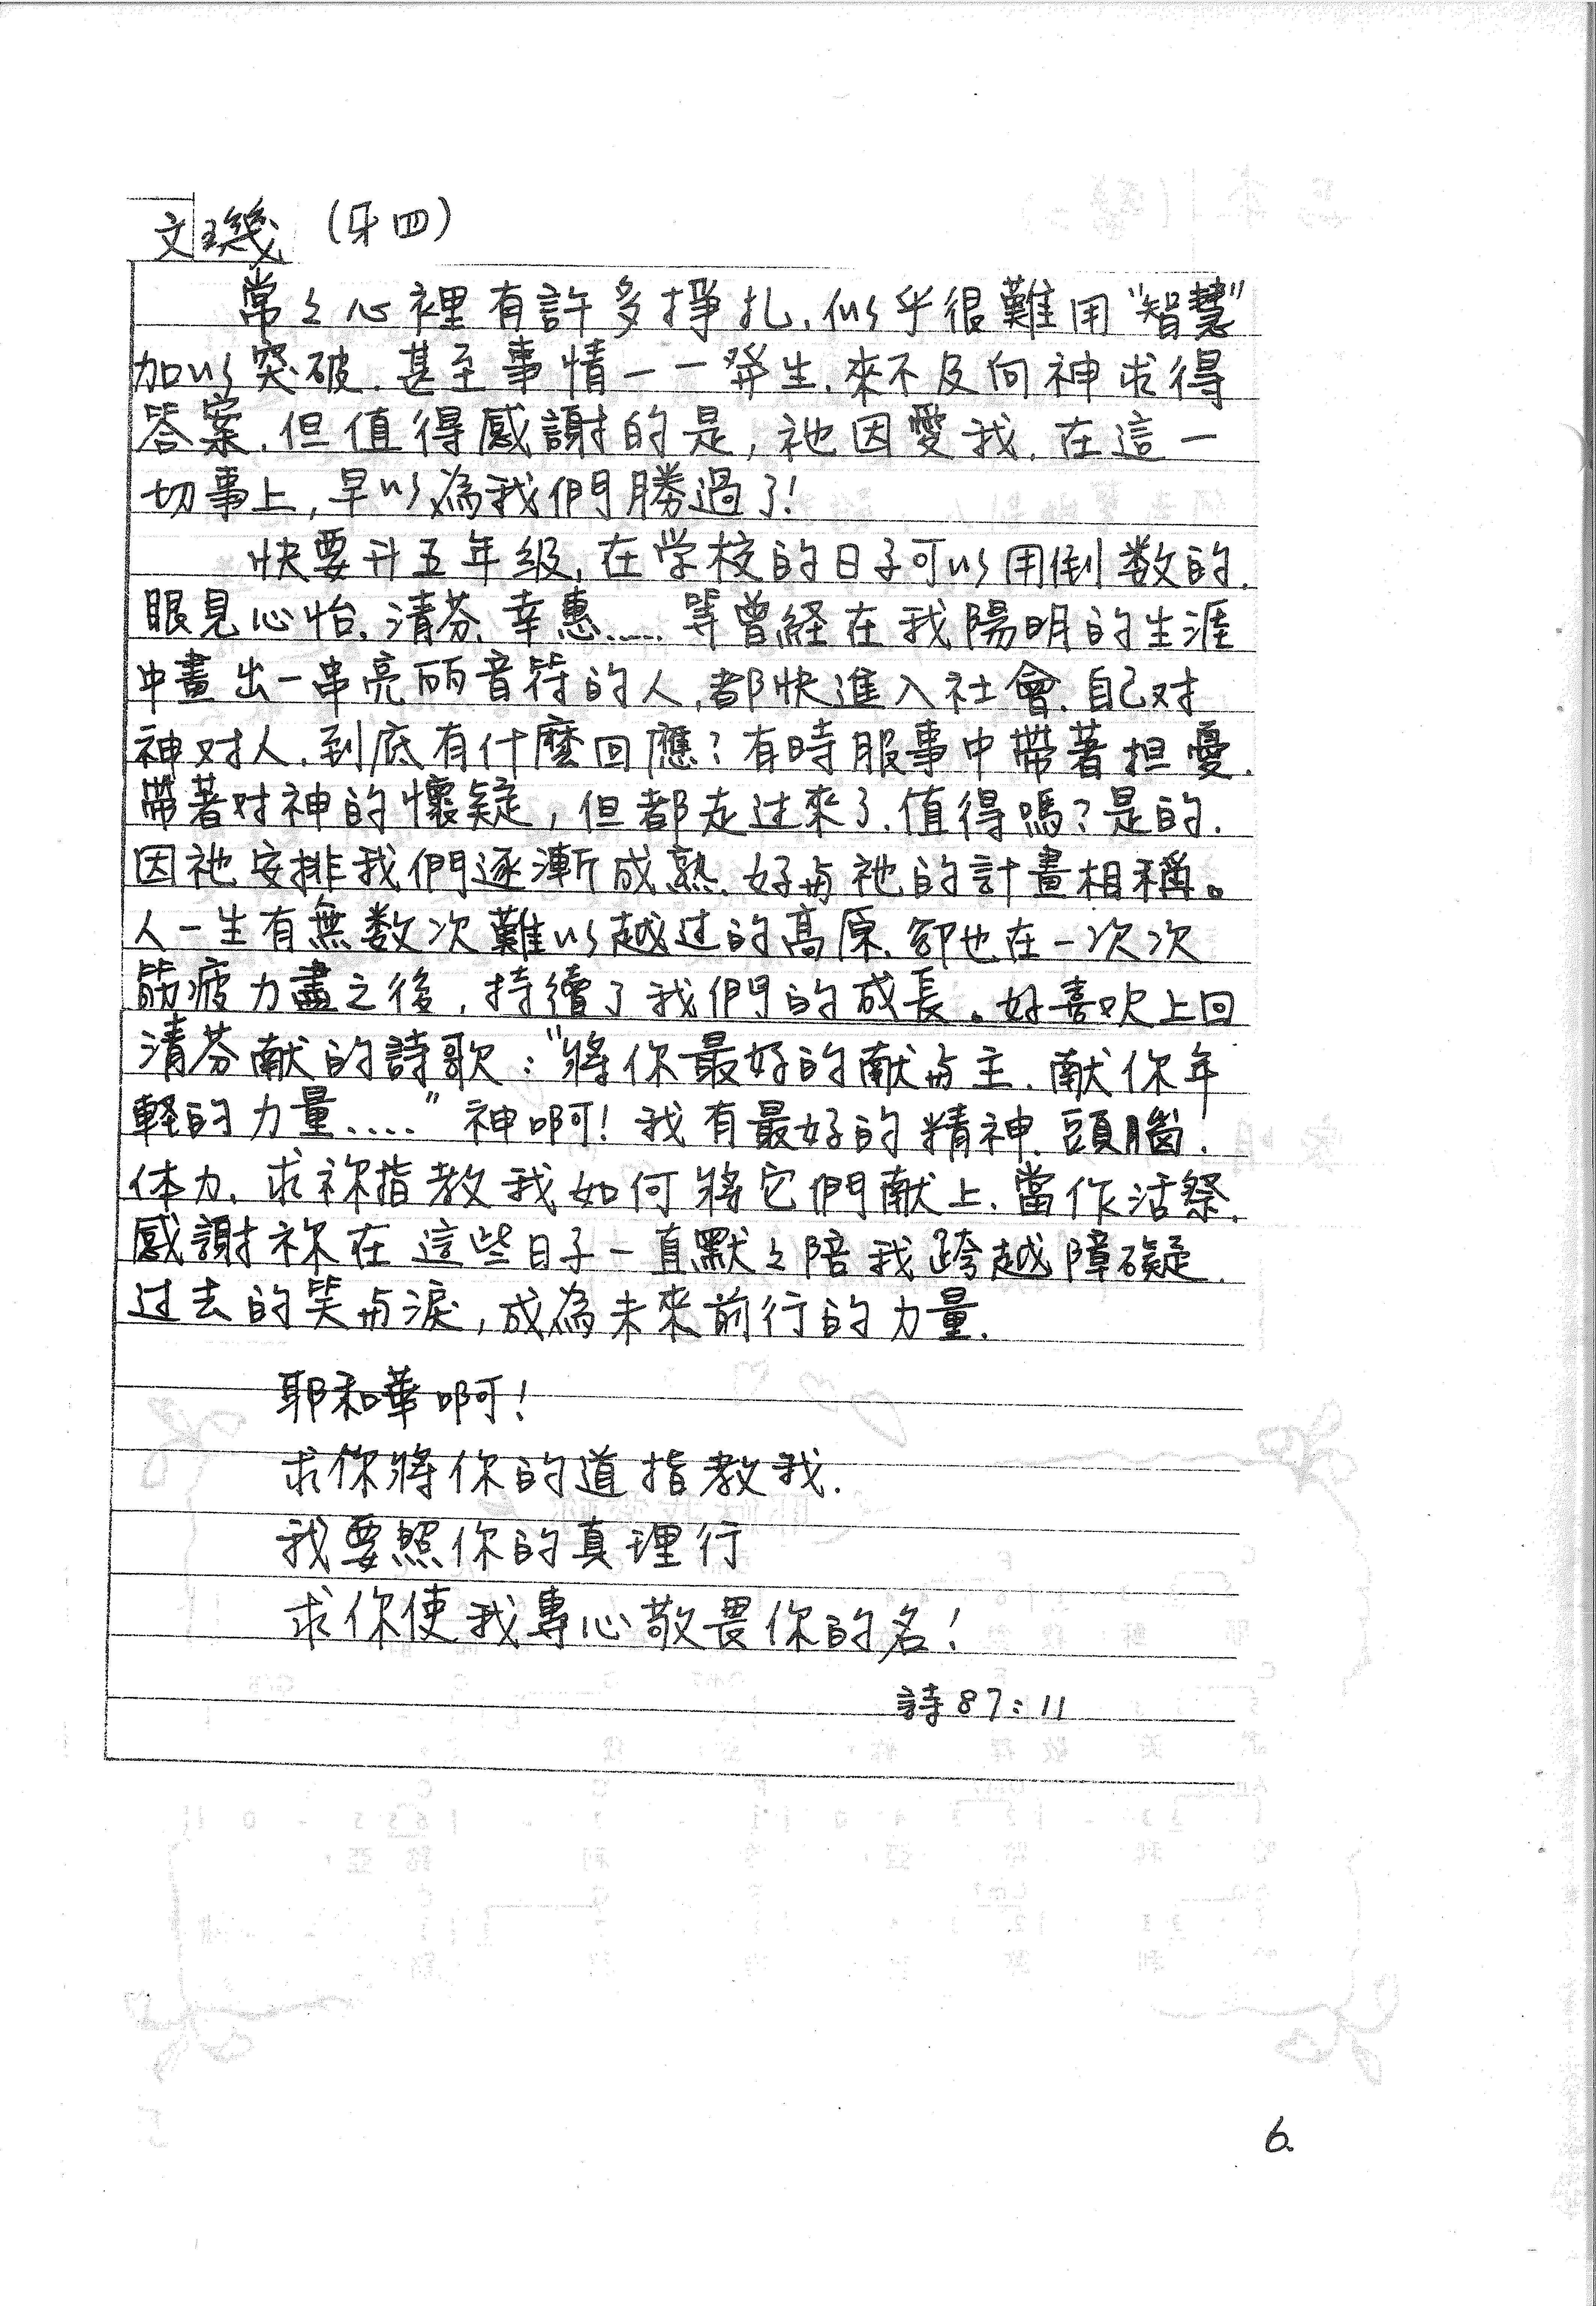 文璣 (牙四)
常々心裡有許多掙扎.似乎很難用"智慧"
加以突破.甚至事情一一發生.來不及向神求得
答案.但值得感謝的是,祂因愛我.在這一
切事上,早以為我們勝過了!
快要升五年級,在学校的日子可以用倒数的.
眼見心怡.清芬.幸惠……等曾経在我陽明的生涯
中畫出一串亮丽音符的人,都快進入社會.自己对
神对人.到底有什麼回應?有時服事中帶著担憂.
帶著对神的懷疑,但都走过來了.值得嗎?是的.
因祂安排我們逐漸成熟.好与祂的計畫相稱。
人一生有無数次難以越过的高原.卻也在一次次
筋疲力盡之後,持續了我們的成長。好喜欢上回
清芬献的詩歌:"將你最好的献与主.献你年
軽的力量...."神啊!我有最好的精神.頭腦.
体力.求祢指教我如何將它們献上.當作活祭.
感謝祢在這些日子一直默々陪我跨越障礙.
过去的笑与淚,成為未來前行的力量.
耶和華啊!
求你將你的道指教我.
我要照你的真理行
求你使我專心敬畏你的名!
詩87:11
6.